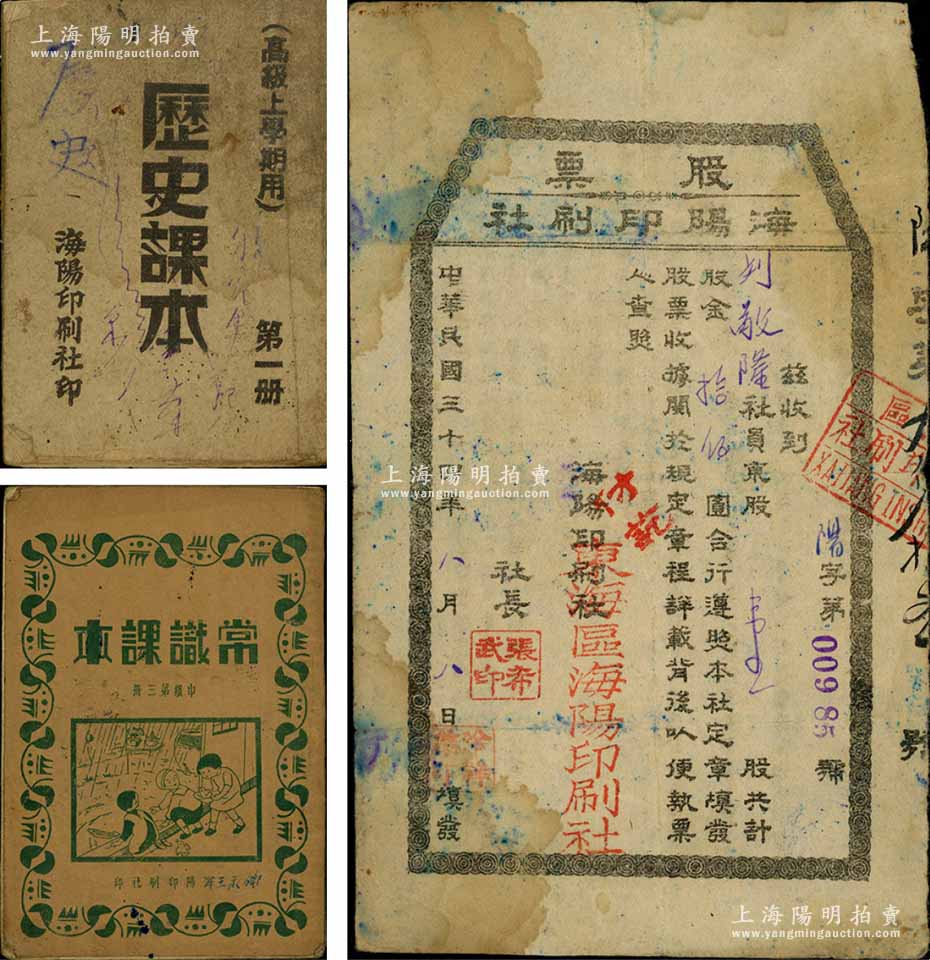 上海陽明拍賣
www.yangmingauction.com
(高級上學期用)
歷史課本
第一册
海陽印刷社印
歷史
常識課本
中級第三册
陽印刷社印
上海陽明拍賣
www.yangmingauction.com
股票
海陽印刷社
陽字第00985號
茲收到
刘敬隆社員東股 股共計
股金拾伍圓合行遵照本社定章填發
股票收據關於規定章程詳載背後以便執票
人查照
海陽印刷社
東海區海陽印刷社
社長
張希武印
中華民國三十四年八月八日填發
上海陽明拍賣
www.yangmingauction.com
上海陽明拍賣
www.yangmingauction.com